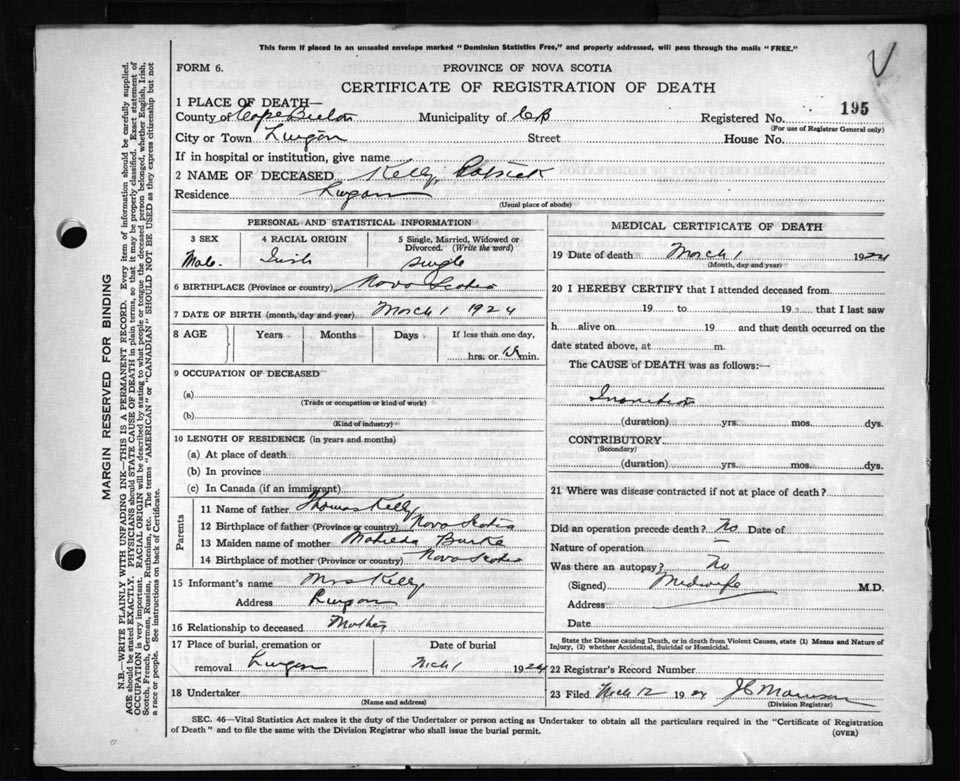 This form if placed in an unsealed envelope marked "Dominion Statistics Free," and properly addressed, will pass through the mails "FREE."
FORM 6.
PROVINCE OF NOVA SCOTIA
CERTIFICATE OF REGISTRATION OF DEATH
1 PLACE OF DEATH—
County of Cape Breton Municipality of CB Registered No. 195
(For use of Registrar General only)
City or Town Street House No.
If in hospital or institution, give name
2 NAME OF DECEASED Kelly, Patrick
Residence
(Usual place of abode)
PERSONAL AND STATISTICAL INFORMATION
3 SEX 4 RACIAL ORIGIN 5 Single, Married, Widowed or Divorced. (Write the word)
Male. Irish single
6 BIRTHPLACE (Province or country) Nova Scotia
7 DATE OF BIRTH (month, day and year) March 1 1924
8 AGE Years Months Days If less than one day,
hrs. or min.
9 OCCUPATION OF DECEASED
(a)
(Trade or occupation or kind of work)
(b)
(Kind of industry)
10 LENGTH OF RESIDENCE (in years and months)
(a) At place of death
(b) In province
(c) In Canada (if an immigrant)
Parents
11 Name of father Thomas Kelly
12 Birthplace of father (Province or country) Nova Scotia
13 Maiden name of mother Matilda Burke
14 Birthplace of mother (Province or country) Nova Scotia
15 Informant's name Mrs Kelly
Address
16 Relationship to deceased Mother
17 Place of burial, cremation or Date of burial
removal Mch 1 1924
18 Undertaker
(Name and address)
MEDICAL CERTIFICATE OF DEATH
19 Date of death March 1 1924
(Month, day and year)
20 I HEREBY CERTIFY that I attended deceased from
19 to 19 that I last saw
h alive on 19 and that death occurred on the
date stated above, at m.
The CAUSE of DEATH was as follows:—
(duration) yrs. mos. dys.
CONTRIBUTORY
(Secondary)
(duration) yrs. mos. dys.
21 Where was disease contracted if not at place of death?
Did an operation precede death? No Date of
Nature of operation —
Was there an autopsy? No
(Signed) Midwife M.D.
Address
Date
State the Disease causing Death, or in death from Violent Causes, state (1) Means and Nature of
Injury, (2) whether Accidental, Suicidal or Homicidal.
22 Registrar's Record Number
23 Filed Mch 12 1924
(Division Registrar)
SEC. 46—Vital Statistics Act makes it the duty of the Undertaker or person acting as Undertaker to obtain all the particulars required in the "Certificate of Registration
of Death" and to file the same with the Division Registrar who shall issue the burial permit.
(OVER)
MARGIN RESERVED FOR BINDING
N.B.—WRITE PLAINLY WITH UNFADING INK—THIS IS A PERMANENT RECORD. Every item of information should be carefully supplied.
AGE should be stated EXACTLY. PHYSICIANS should STATE CAUSE OF DEATH in plain terms, so that it may be properly classified. Exact statement of
OCCUPATION is very important. RACIAL ORIGIN will be described by stating to what people or tongue the deceased person belonged, whether English, Irish,
Scotch, French, German, Russian, Ruthenian, etc. The terms "AMERICAN" or "CANADIAN" SHOULD NOT BE USED as they express citizenship but not
a race or people. See instructions on back of Certificate.